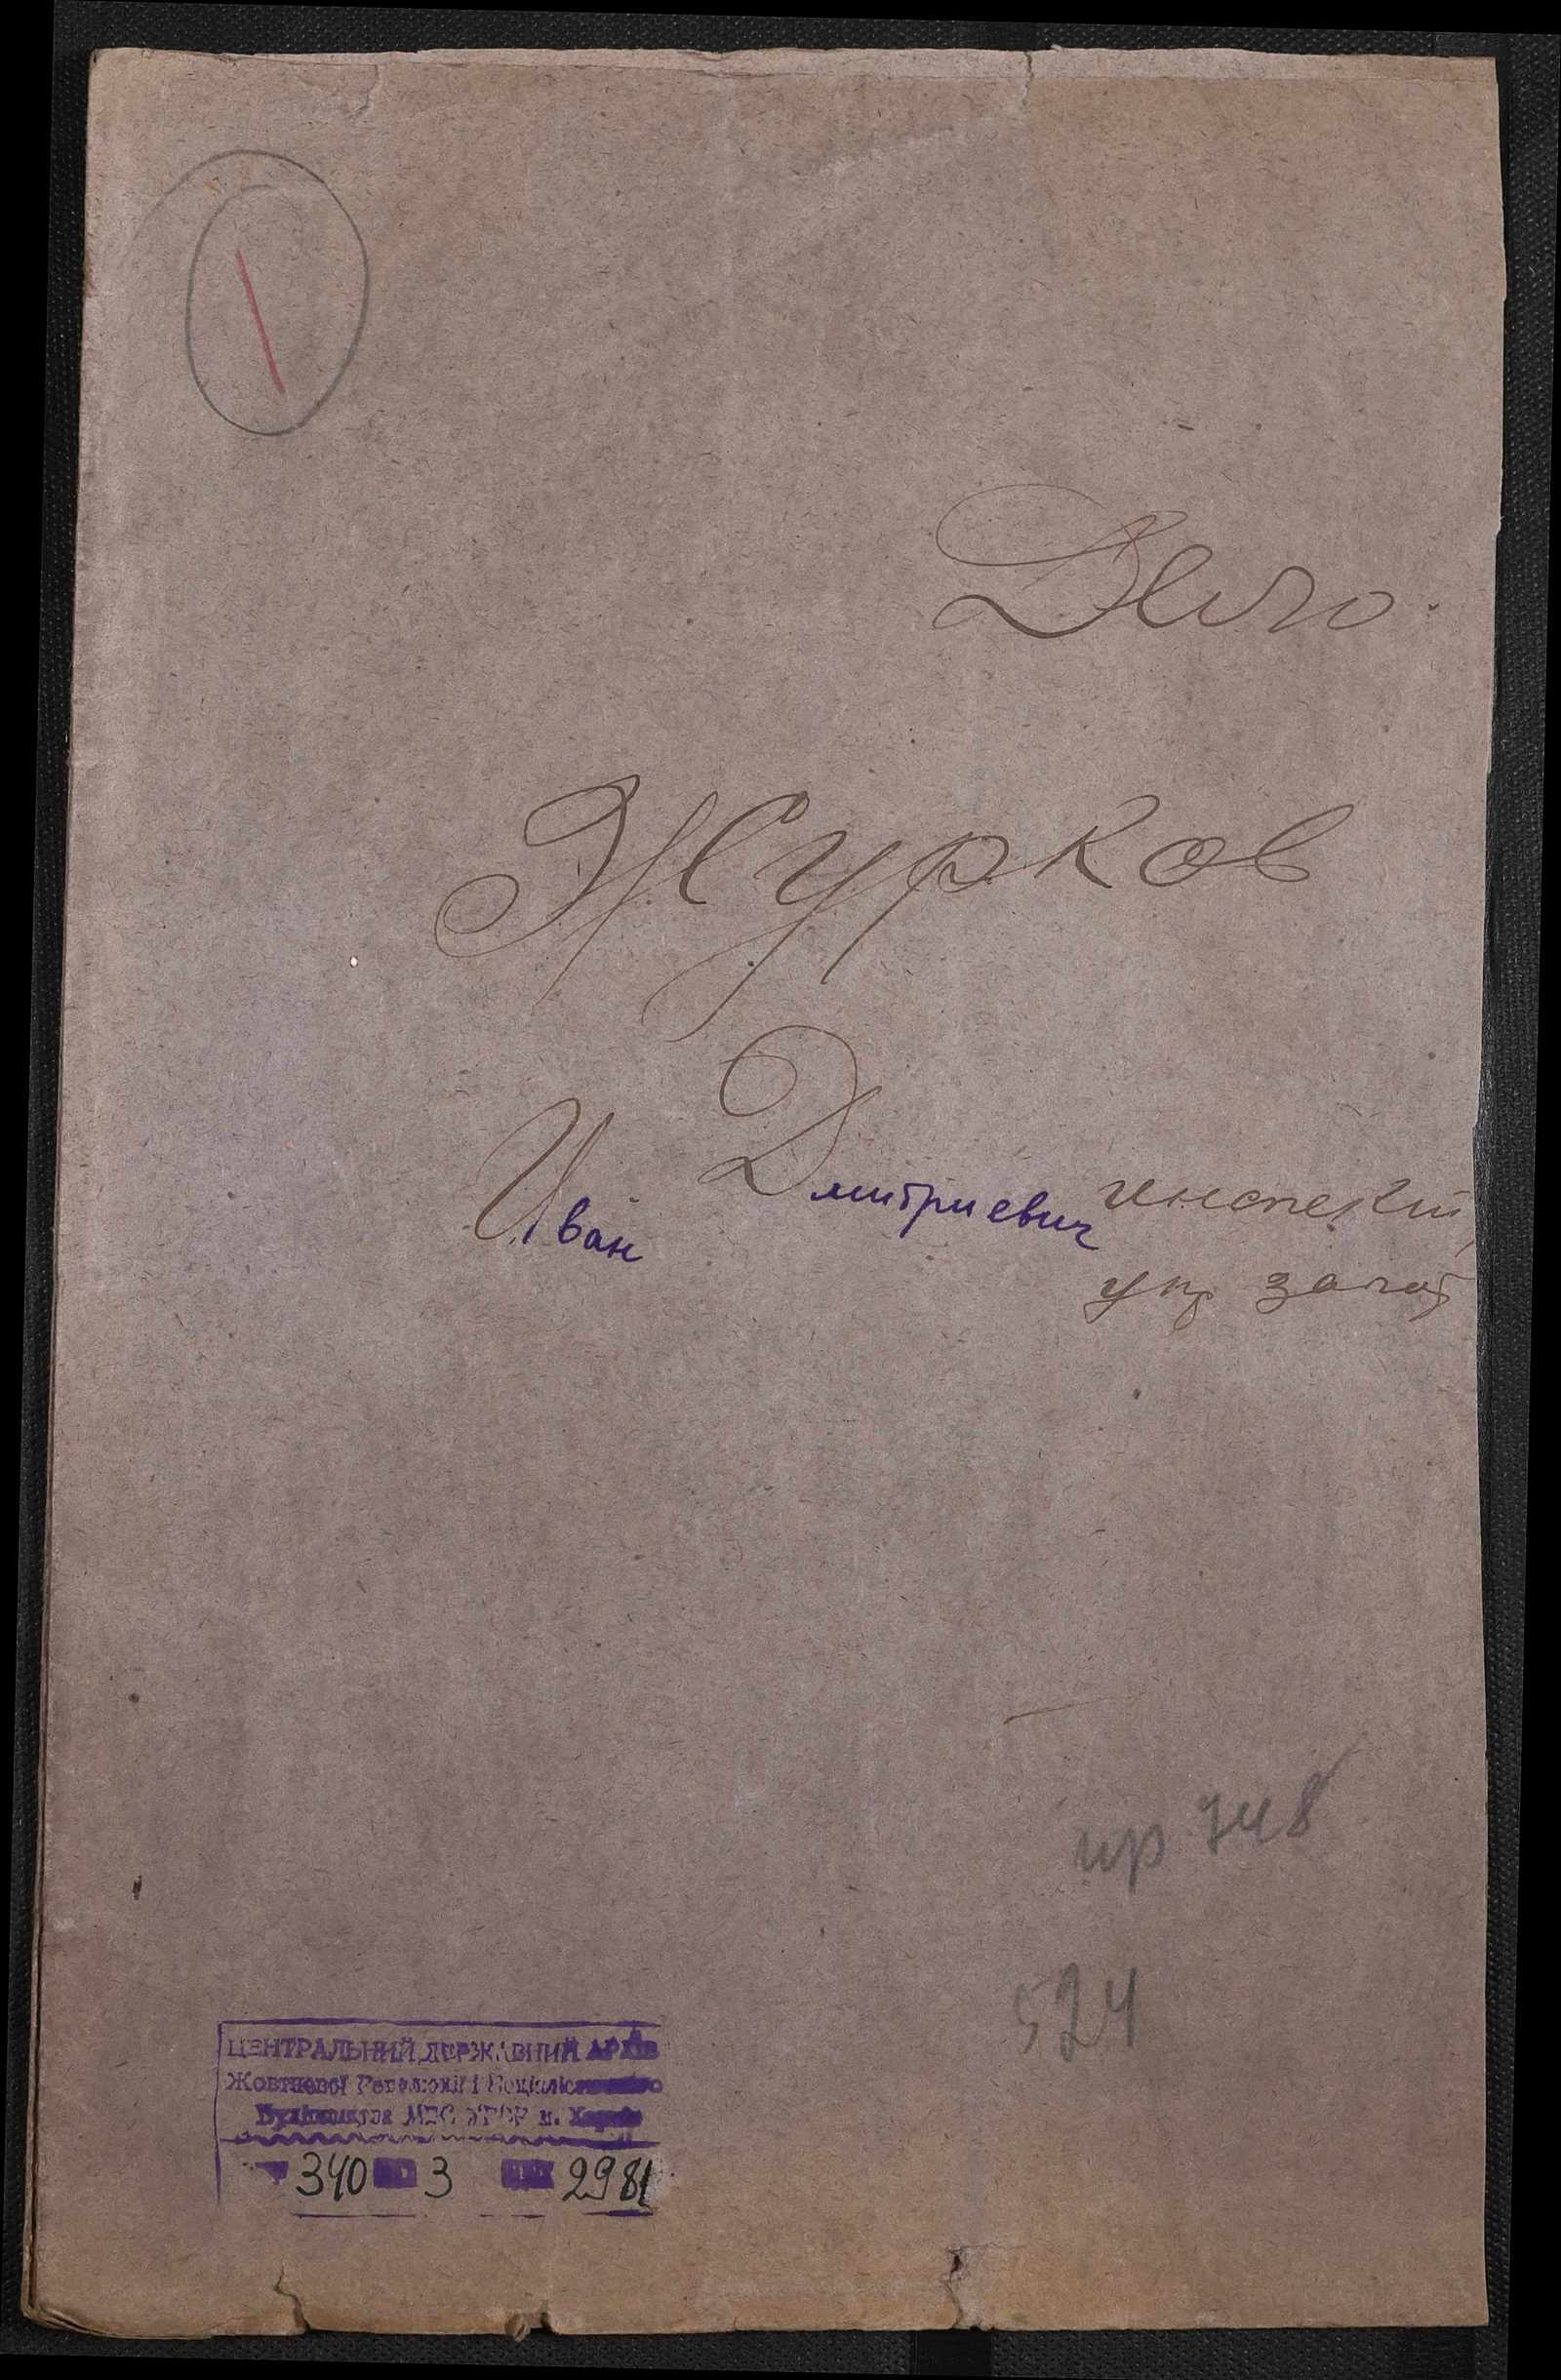 Дело.
Журков
Иван Дмитриевич инспект
упр загот
пр 748
524
ЦЕНТРАЛЬНИЙ ДЕРЖАВНИЙ АРХІВ
Жовтневої Революції і Соціалістичного
Будівництва МВС УРСР м. Харків
340 3 2981